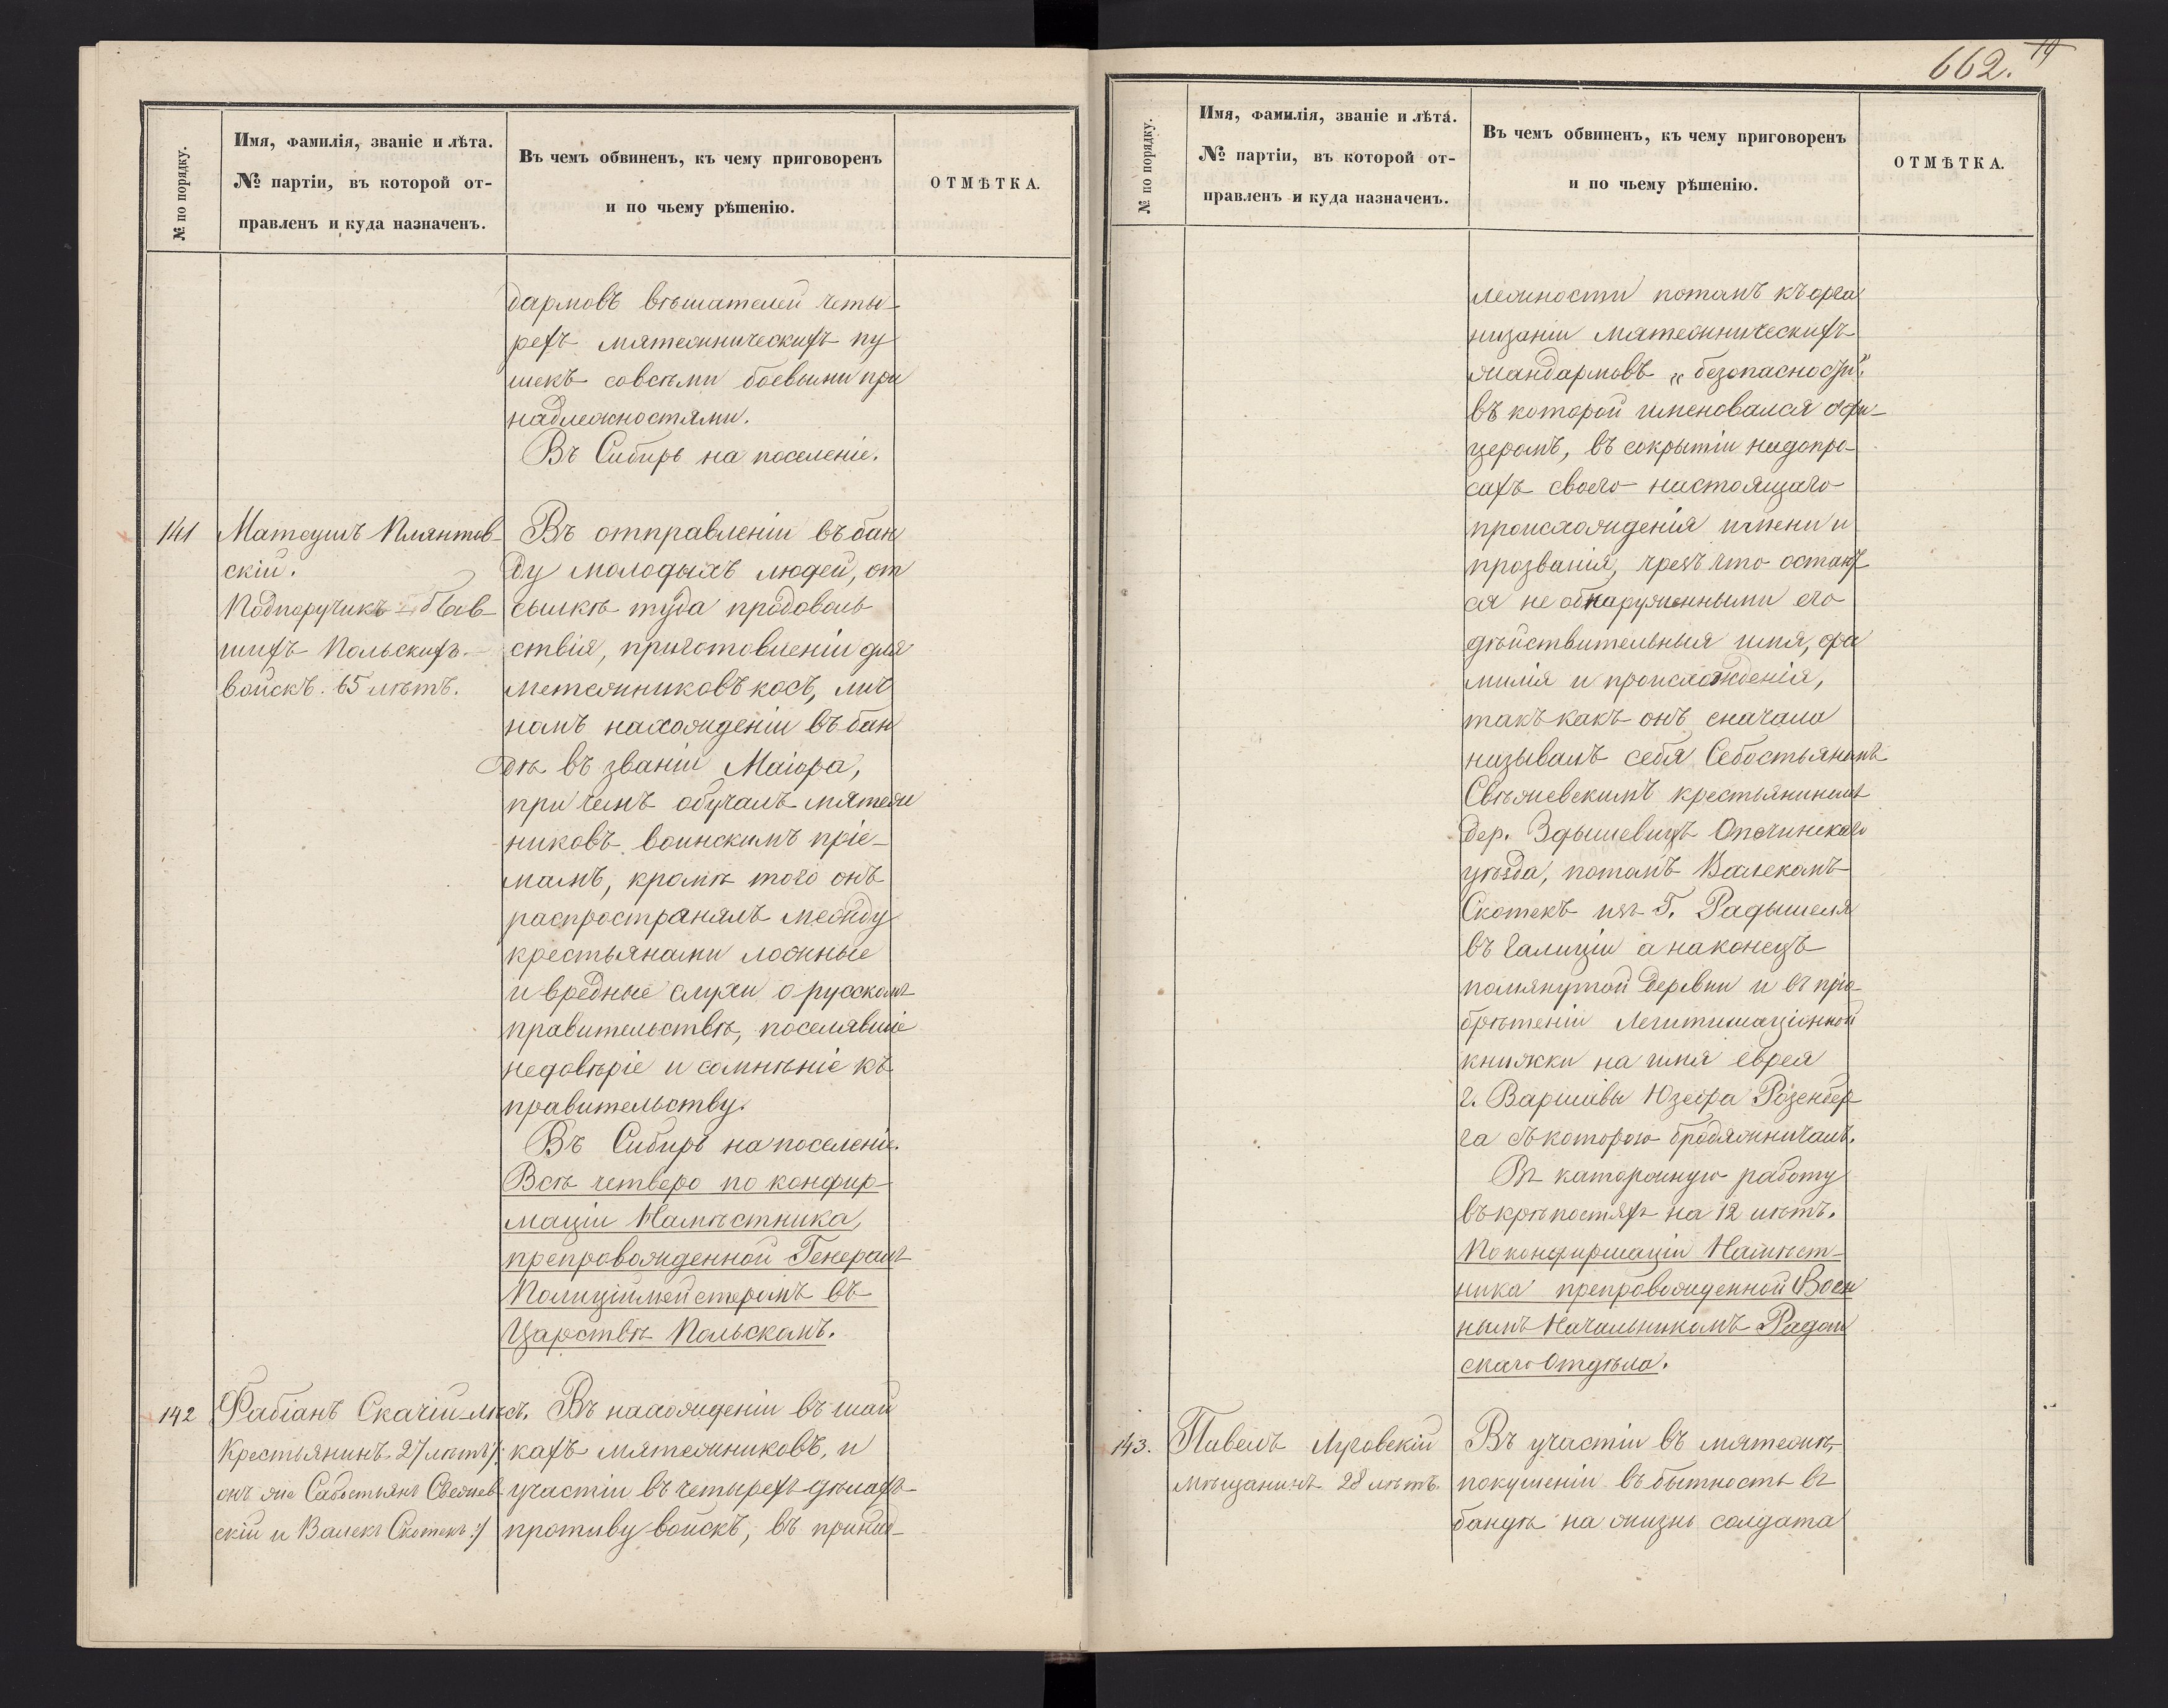 № по порядку.
Имя, фамилія, званіе и лѣта.
№ партіи, въ которой от-
правленъ и куда назначенъ.
Въ чемъ обвиненъ, къ чему приговоренъ
и по чьему рѣшенію.
ОТМѢТКА.
дармовъ вѣшателей четы-
рехъ мятежническихъ пу
шекъ совсѣми боевыми при
надлежностями.
Въ Сибирь на поселеніе.
141
Матеушъ Плянтов-
скій.
Подпоручикъ быв-
шихъ Польскихъ
войскъ. 65 лѣтъ.
Въ отправленіи въ бан
ду молодыхъ людей, от
сылкѣ туда продоволь
ствія, приготовленіи для
метежниковъ косъ, лич
номъ нахожденіи въ бан
дѣ въ званіи Маіора,
при чемъ обучалъ мятеж
никовъ воинскимъ пріе-
мамъ, кромѣ того онъ
распространялъ между
крестьянами ложные
и вредные слухи о русскомъ
правительствѣ, поселявшіе
недовѣріе и сомнѣніе къ
правительству.
Въ Сибирь на поселеніе.
Всѣ четверо по конфир-
маціи Намѣстника,
препровожденной Генералъ
Полиціймейстеромъ въ
Царствѣ Польскомъ.
142
Фабіанъ Скачій-лѣсъ.
Крестьянинъ 27 лѣтъ /:
онъ же Сабостьянъ Свежев
скій и Валекъ Скотекъ :/
Въ нахожденіи въ шай
кахъ мятежниковъ, и
участіи въ четырехъ дѣлахъ
противу войскъ, въ принад-
662.
№ по порядку.
Имя, фамилія, званіе и лѣта.
№ партіи, въ которой от-
правленъ и куда назначенъ.
Въ чемъ обвиненъ, къ чему приговоренъ
и по чьему рѣшенію.
ОТМѢТКА.
лежности потомъ къ орга
низаціи мятежническихъ
жандармовъ „безопасности“
въ которой именовался офи-
церомъ, въ сокрытіи надопро-
сахъ своего настоящаго
происхожденія имени и
прозванія, чрезъ что остают
ся не обнаруженными его
дѣйствительныя имя, фа
милія и происхожденія,
такъ какъ онъ сначала
называлъ себя Себостьяномъ
Свѣжевскимъ крестьяниномъ
дер. Здышевицъ Опочинскаго
уѣзда, потомъ Валекомъ
Скотекъ изъ Г. Радышеля
въ Галиціи а наконецъ
помянутой деревни и въ прі-
обрѣтеніи Легитимаціонной
книжки на имя еврея
г. Варшавы Юзефа Розенбер
га съ которою бродяжничалъ.
Въ каторжную работу
въ крѣпостяхъ на 12 лѣтъ.
По конфирмаціи Намѣст-
ника препровожденной Воен
нымъ Начальникомъ Радом
скаго Отдѣла.
143.
Павелъ Луговскій
мѣщанинъ 28 лѣтъ.
Въ участіи въ мятежѣ,
покушеніи въ бытность въ
бандѣ на жизнь солдата